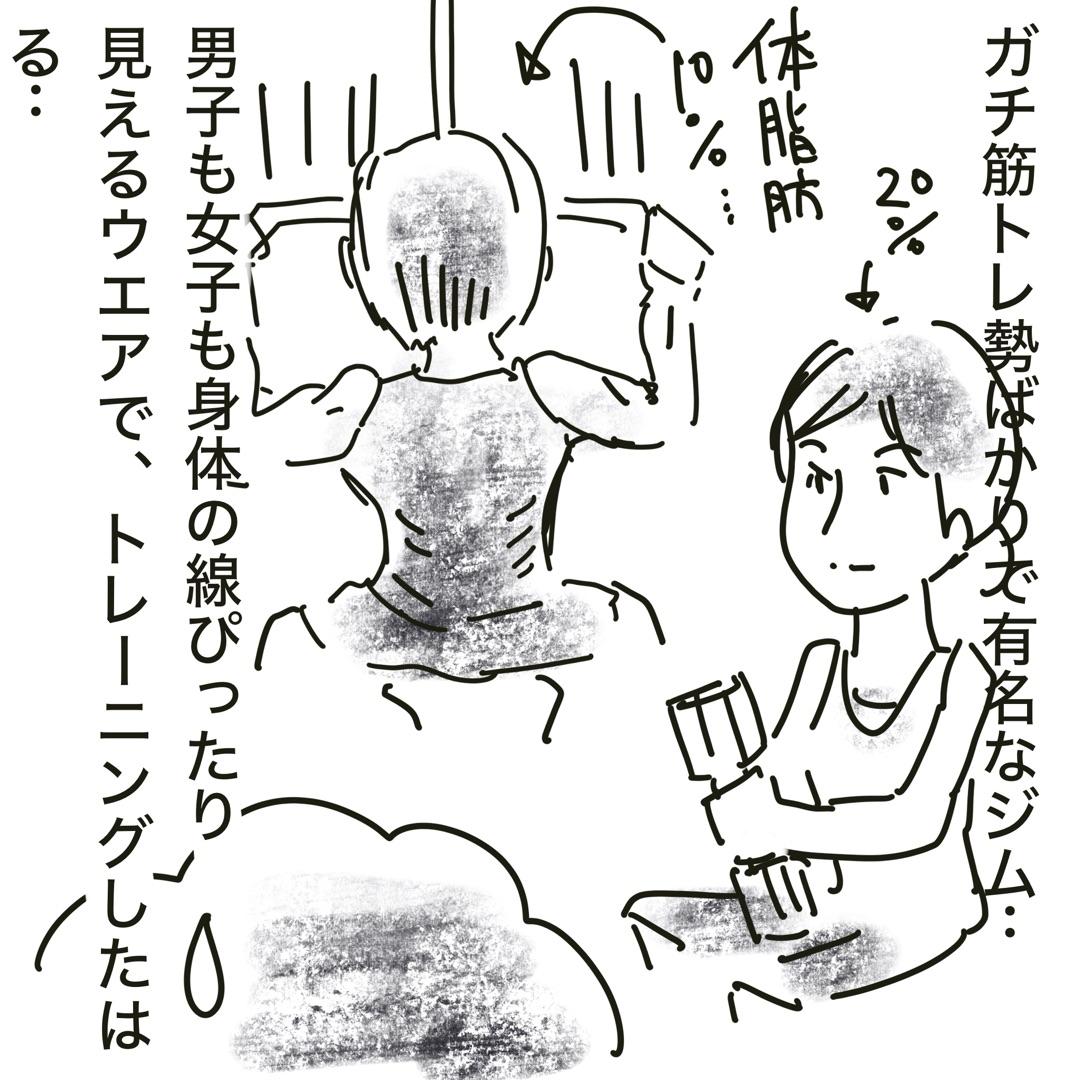 ガチ筋トレ勢ばかりで有名なジム…
20%
体脂肪
10%…
男子も女子も身体の線ぴったり
見えるウエアで、トレーニングしたは
る…